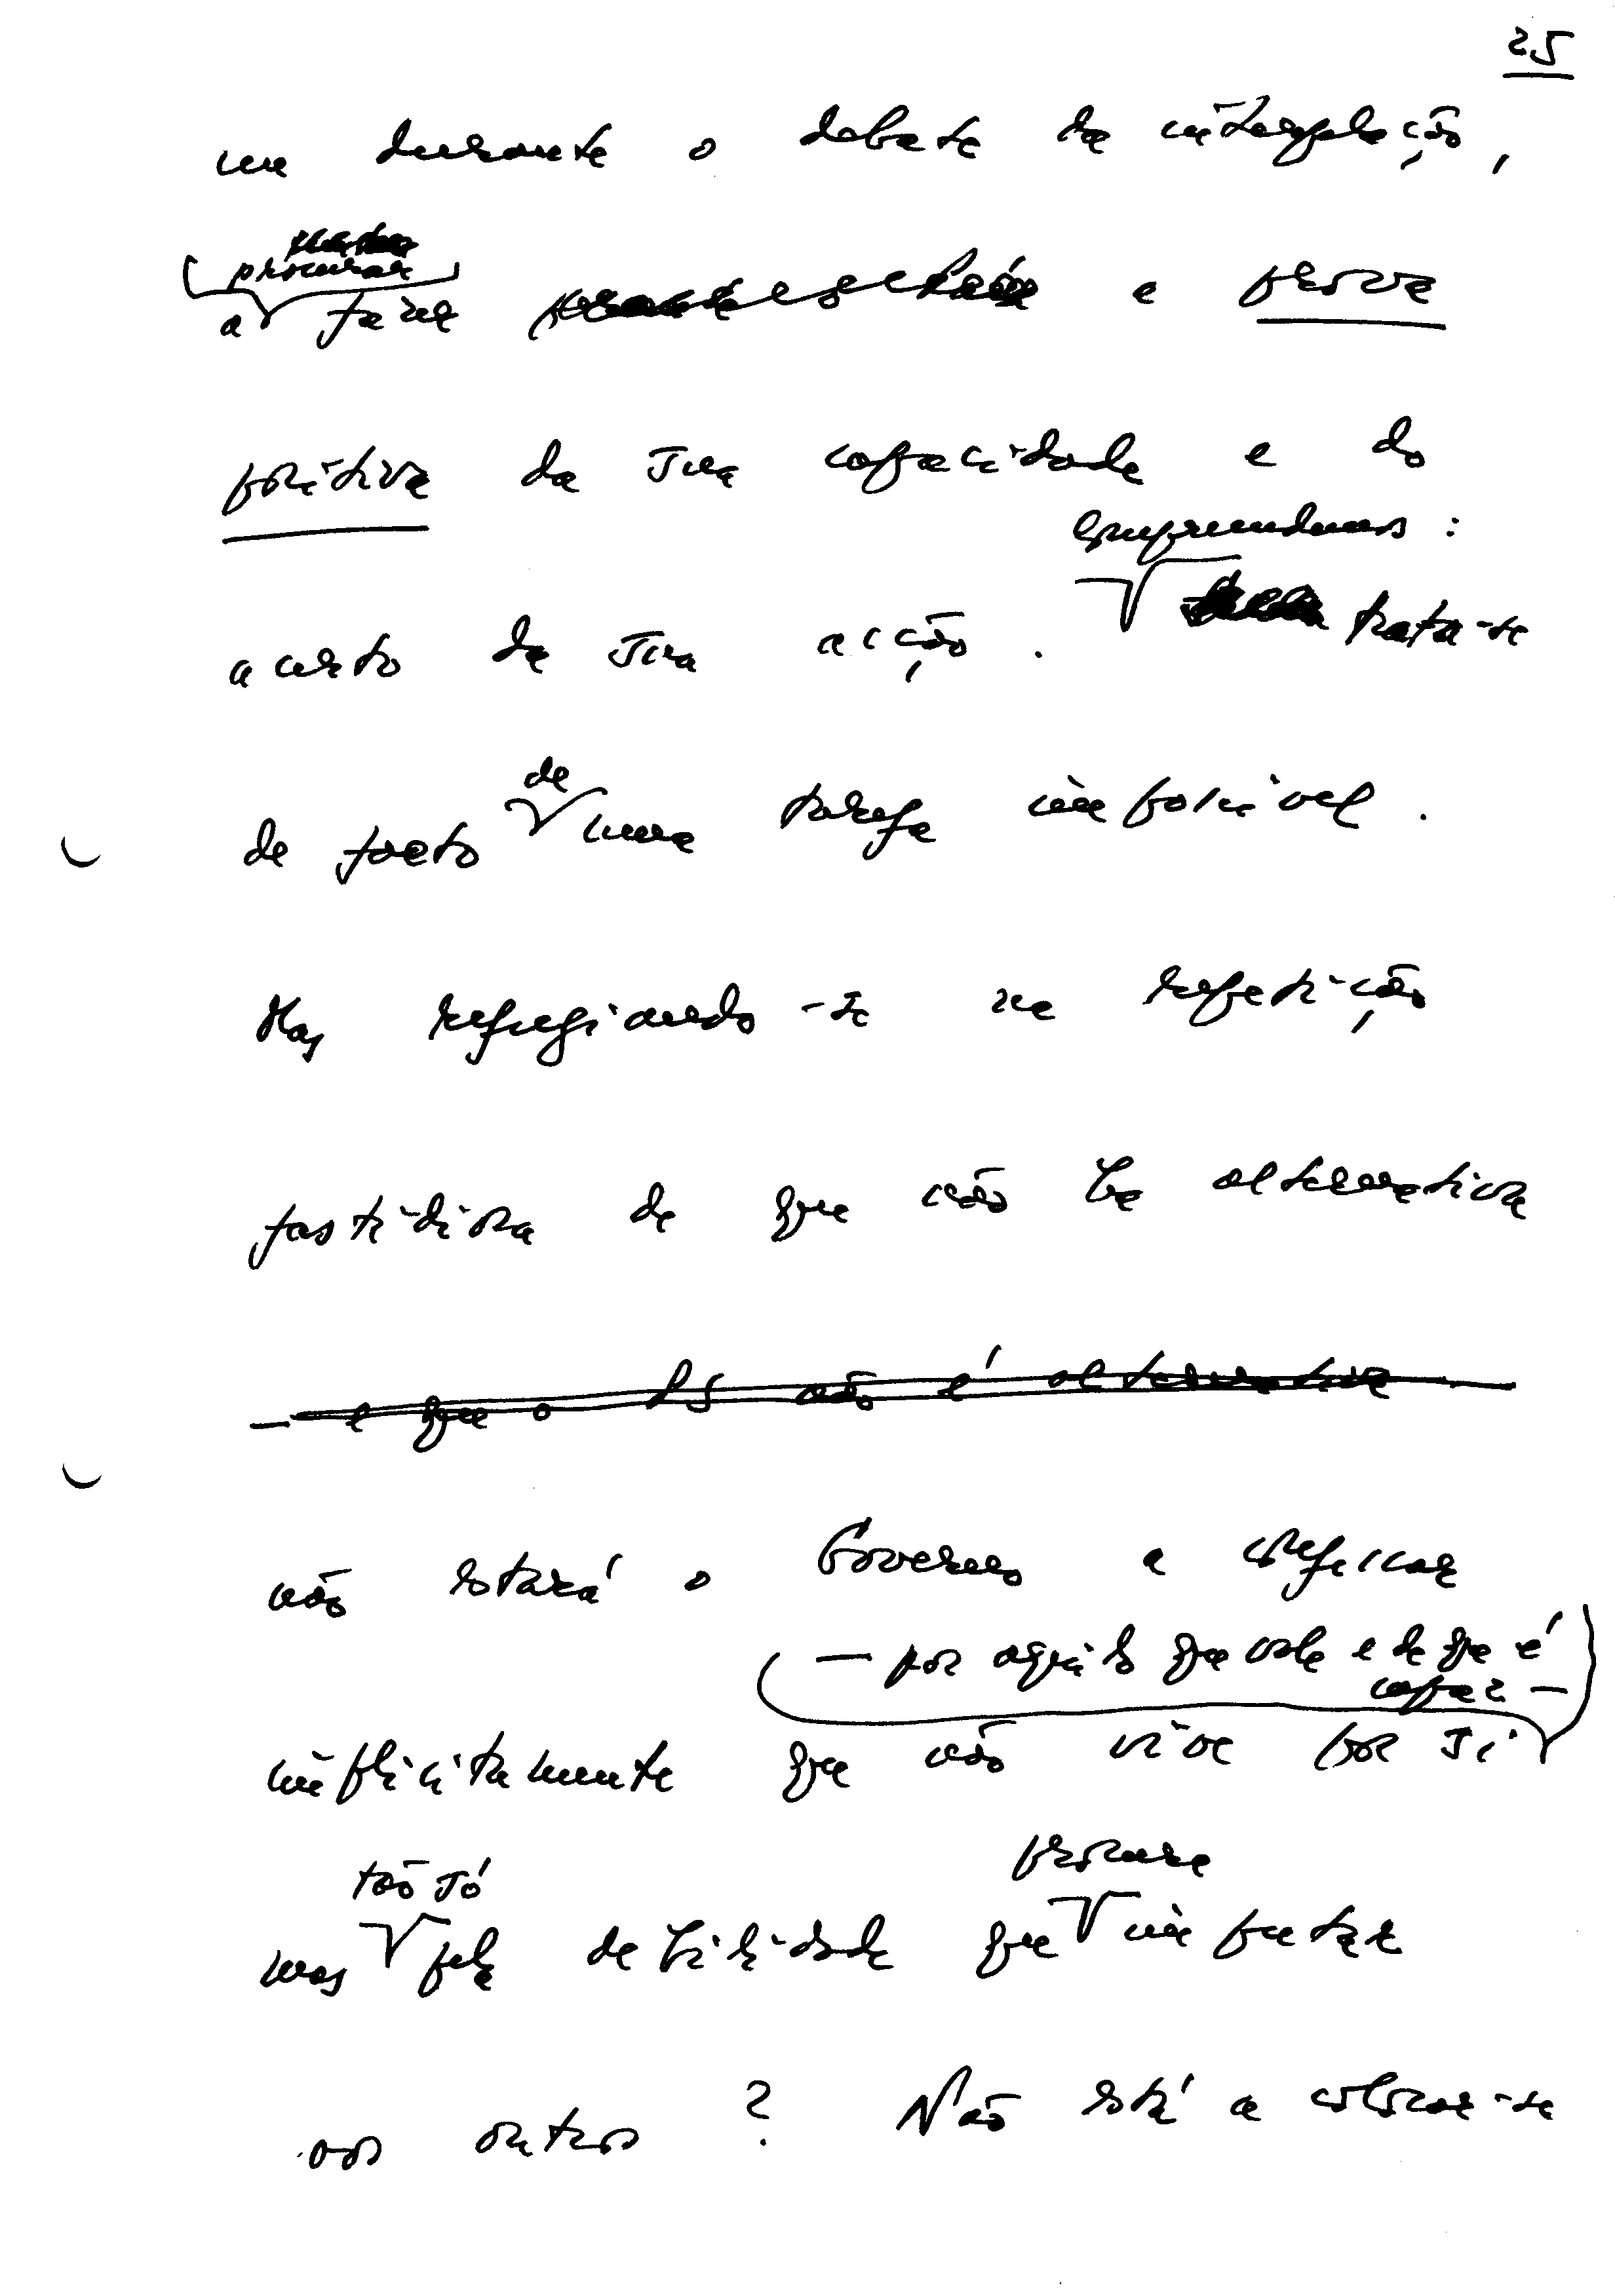 25
em durante o debate da interpelação,
procurar
a fazer e prova
positiva da sua capacidade e do
compreendemos :
acerto da sua acção. trata-se
de
de facto uma tarefa impossível.
Mas refugiando-se na repetição
fastidiosa de que não há alternativa
— e que o PS não é alternativa
não estará o Governo a confessar
— por aquilo que vale e de que é
capaz —
implicitamente que não vive por si
tão só procura
mas pela debilidade que imputar
aos outros ? Não está a colocar-se